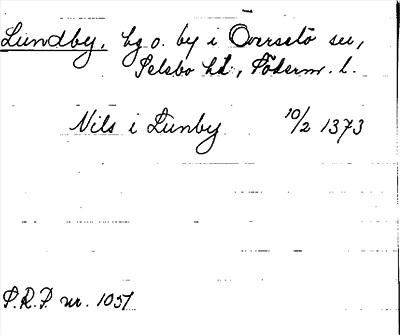 Lundby, hg o. by i Överselö sn,
Selebo hd, Söderm. l.
Nils i Lunby 10/2 1373
S.R.P. nr. 1051